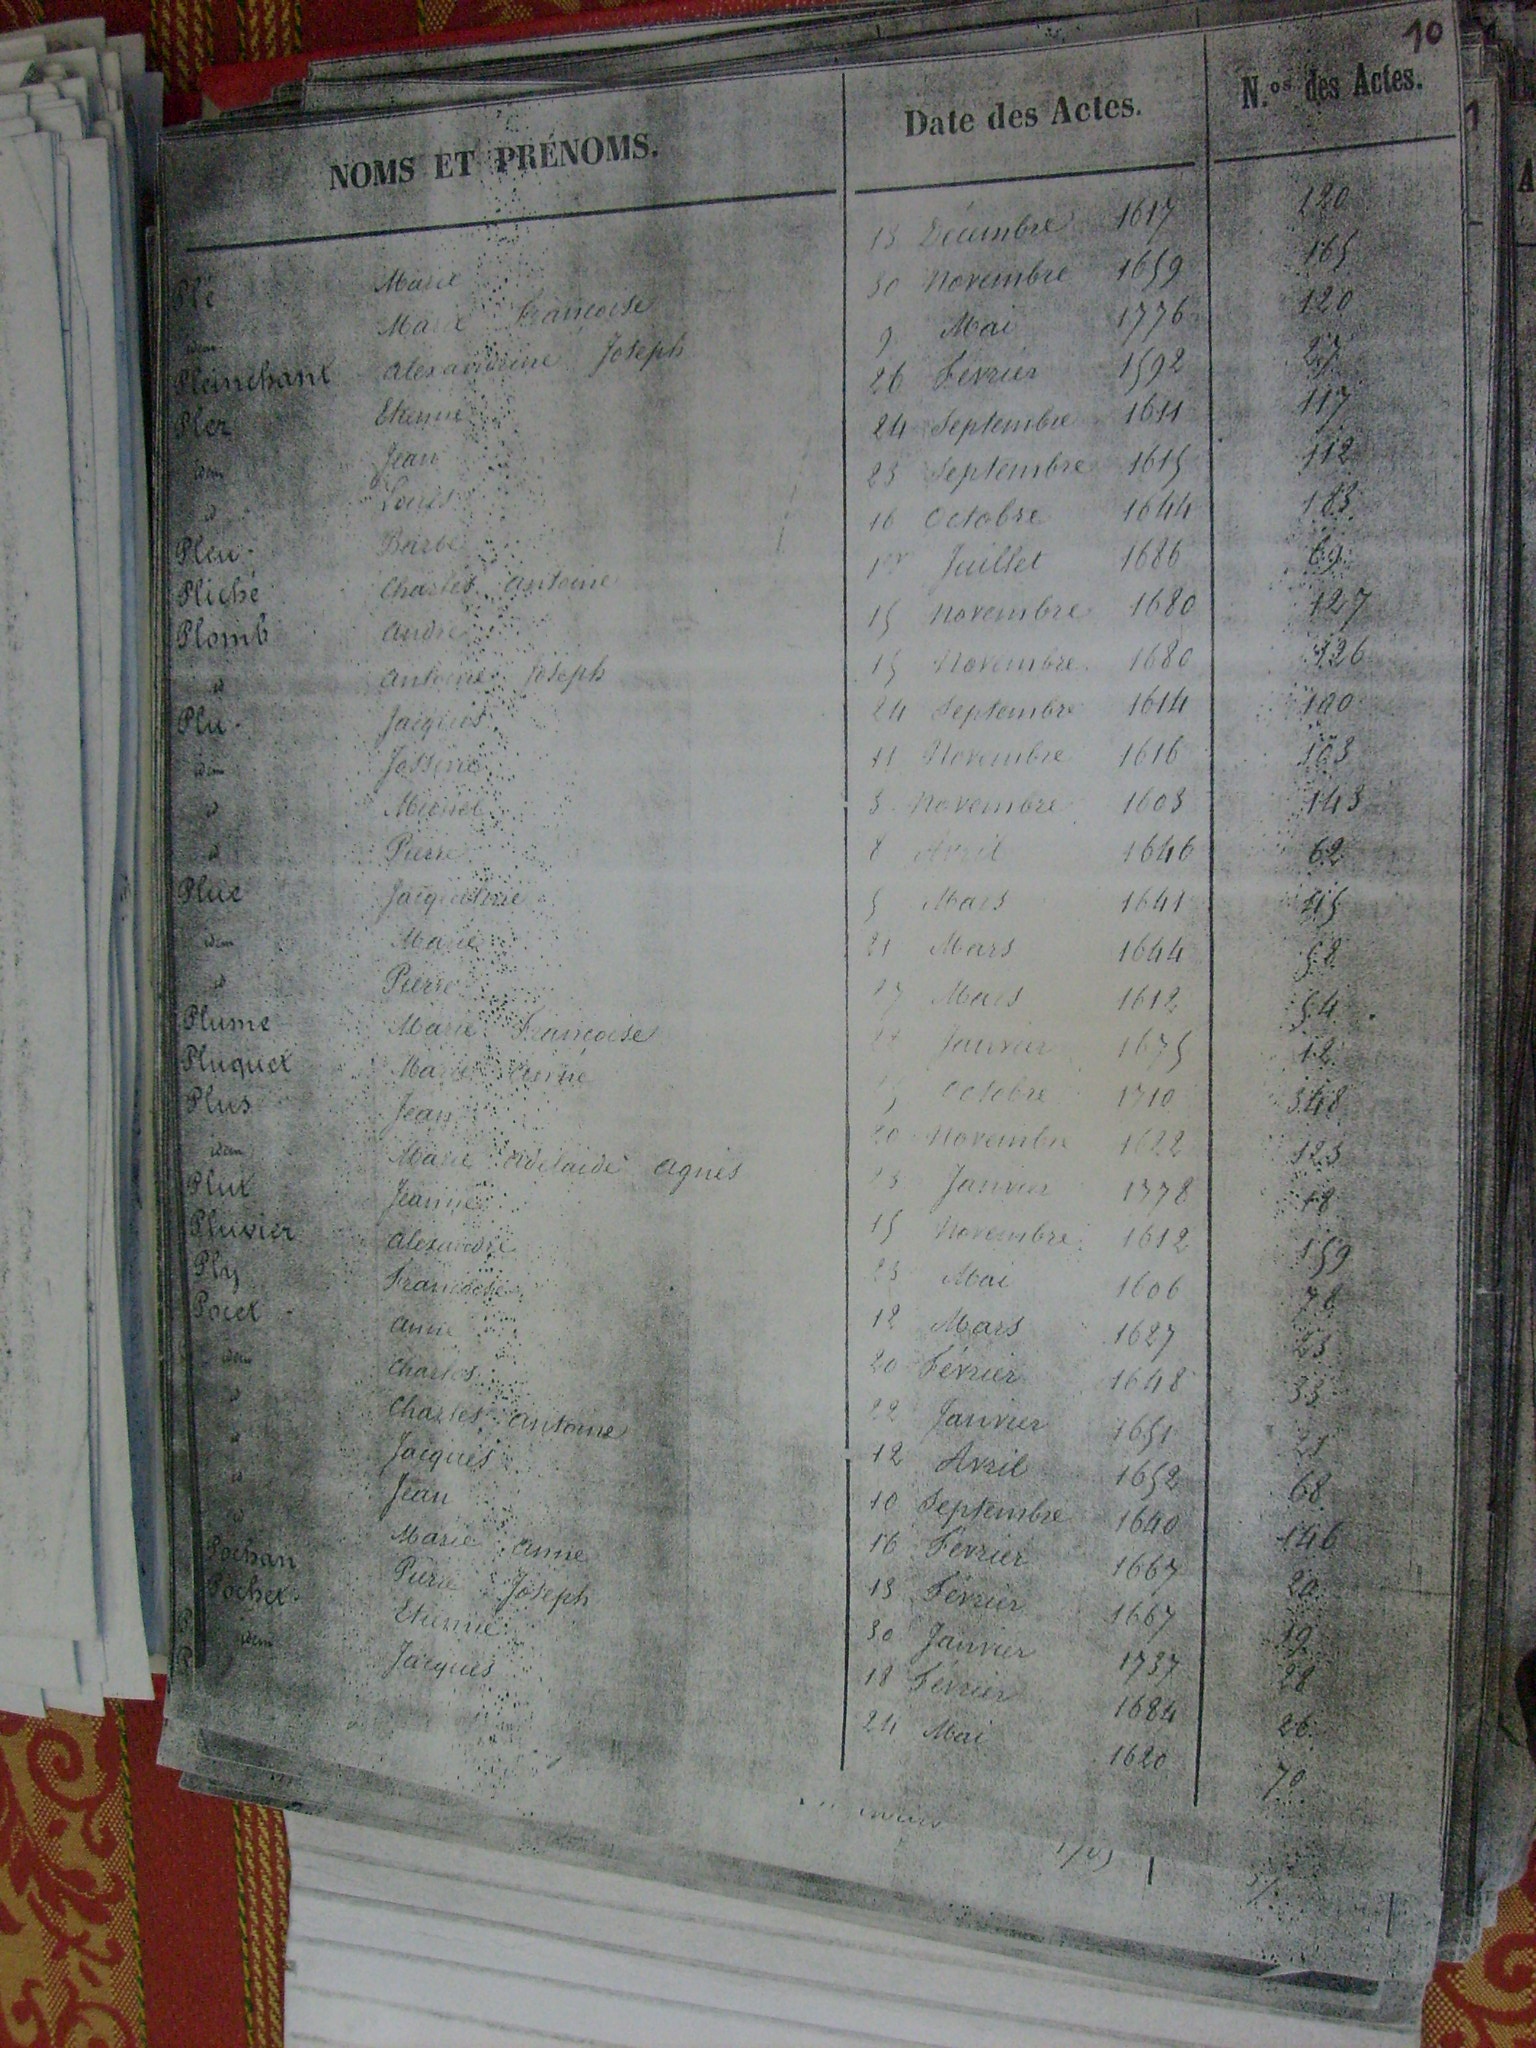 10
NOMS ET PRÉNOMS. Date des Actes. N.os des Actes.
Plé Marie 13 Décembre 1617 120
idem Marie Françoise 30 Novembre 1659 165
Pleinchant Alexandrine Joseph 9 Mai 1776 120
Plez Etienne 26 Février 1592 27
idem Jean 24 Septembre 1611 117
id Louis 23 Septembre 1615 112
Pleu Barbe 16 Octobre 1644 183
Pliché Charles Antoine 1er Juillet 1686 69
Plomb André 15 Novembre 1680 127
id Antoine Joseph 15 Novembre 1680 326
Plu Jacques 24 Septembre 1614 100
idem Jossine 11 Novembre 1616 103
id Michel 3 Novembre 1603 143
id Pierre 8 Avril 1646 62
Plue Jacqueline 5 Mars 1641 45
idem Marie 21 Mars 1644 58
id Pierre 17 Mars 1612 54
Plume Marie Françoise Janvier 1675 12
Pluquet Marie Anne Octobre 1710 348
Plus Jean 20 Novembre 1622 123
idem Marie Adelaïde Agnès 23 Janvier 1778 18
Plut Jeanne 15 Novembre 1612 159
Pluvier Alexandre 23 Mai 1606 76
Ply Françoise 12 Mars 1627 23
Pocet Anne 20 Février 1648 33
idem Charles 22 Janvier 1651 21
id Charles Antoine 12 Avril 1652 68
id Jacques 10 Septembre 1640 146
id Jean 16 Février 1667 20
id Marie Anne 13 Février 1667 19
Pochan Pierre Joseph 30 Janvier 1737 28
Pochet Etienne 18 Février 1684 26
idem Jacques 24 Mai 1620 70